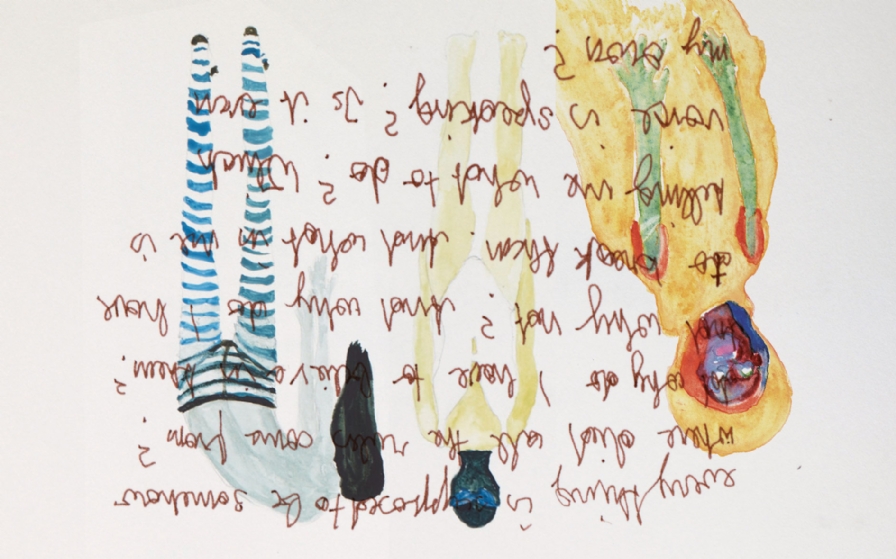 everything is supposed to be somehow
where did all the rules come from?
why do I have to believe in them?
and why not? And why do I have
to break them. And what in me is
telling me what to do? Which
voice is speaking? Is it even
my own?